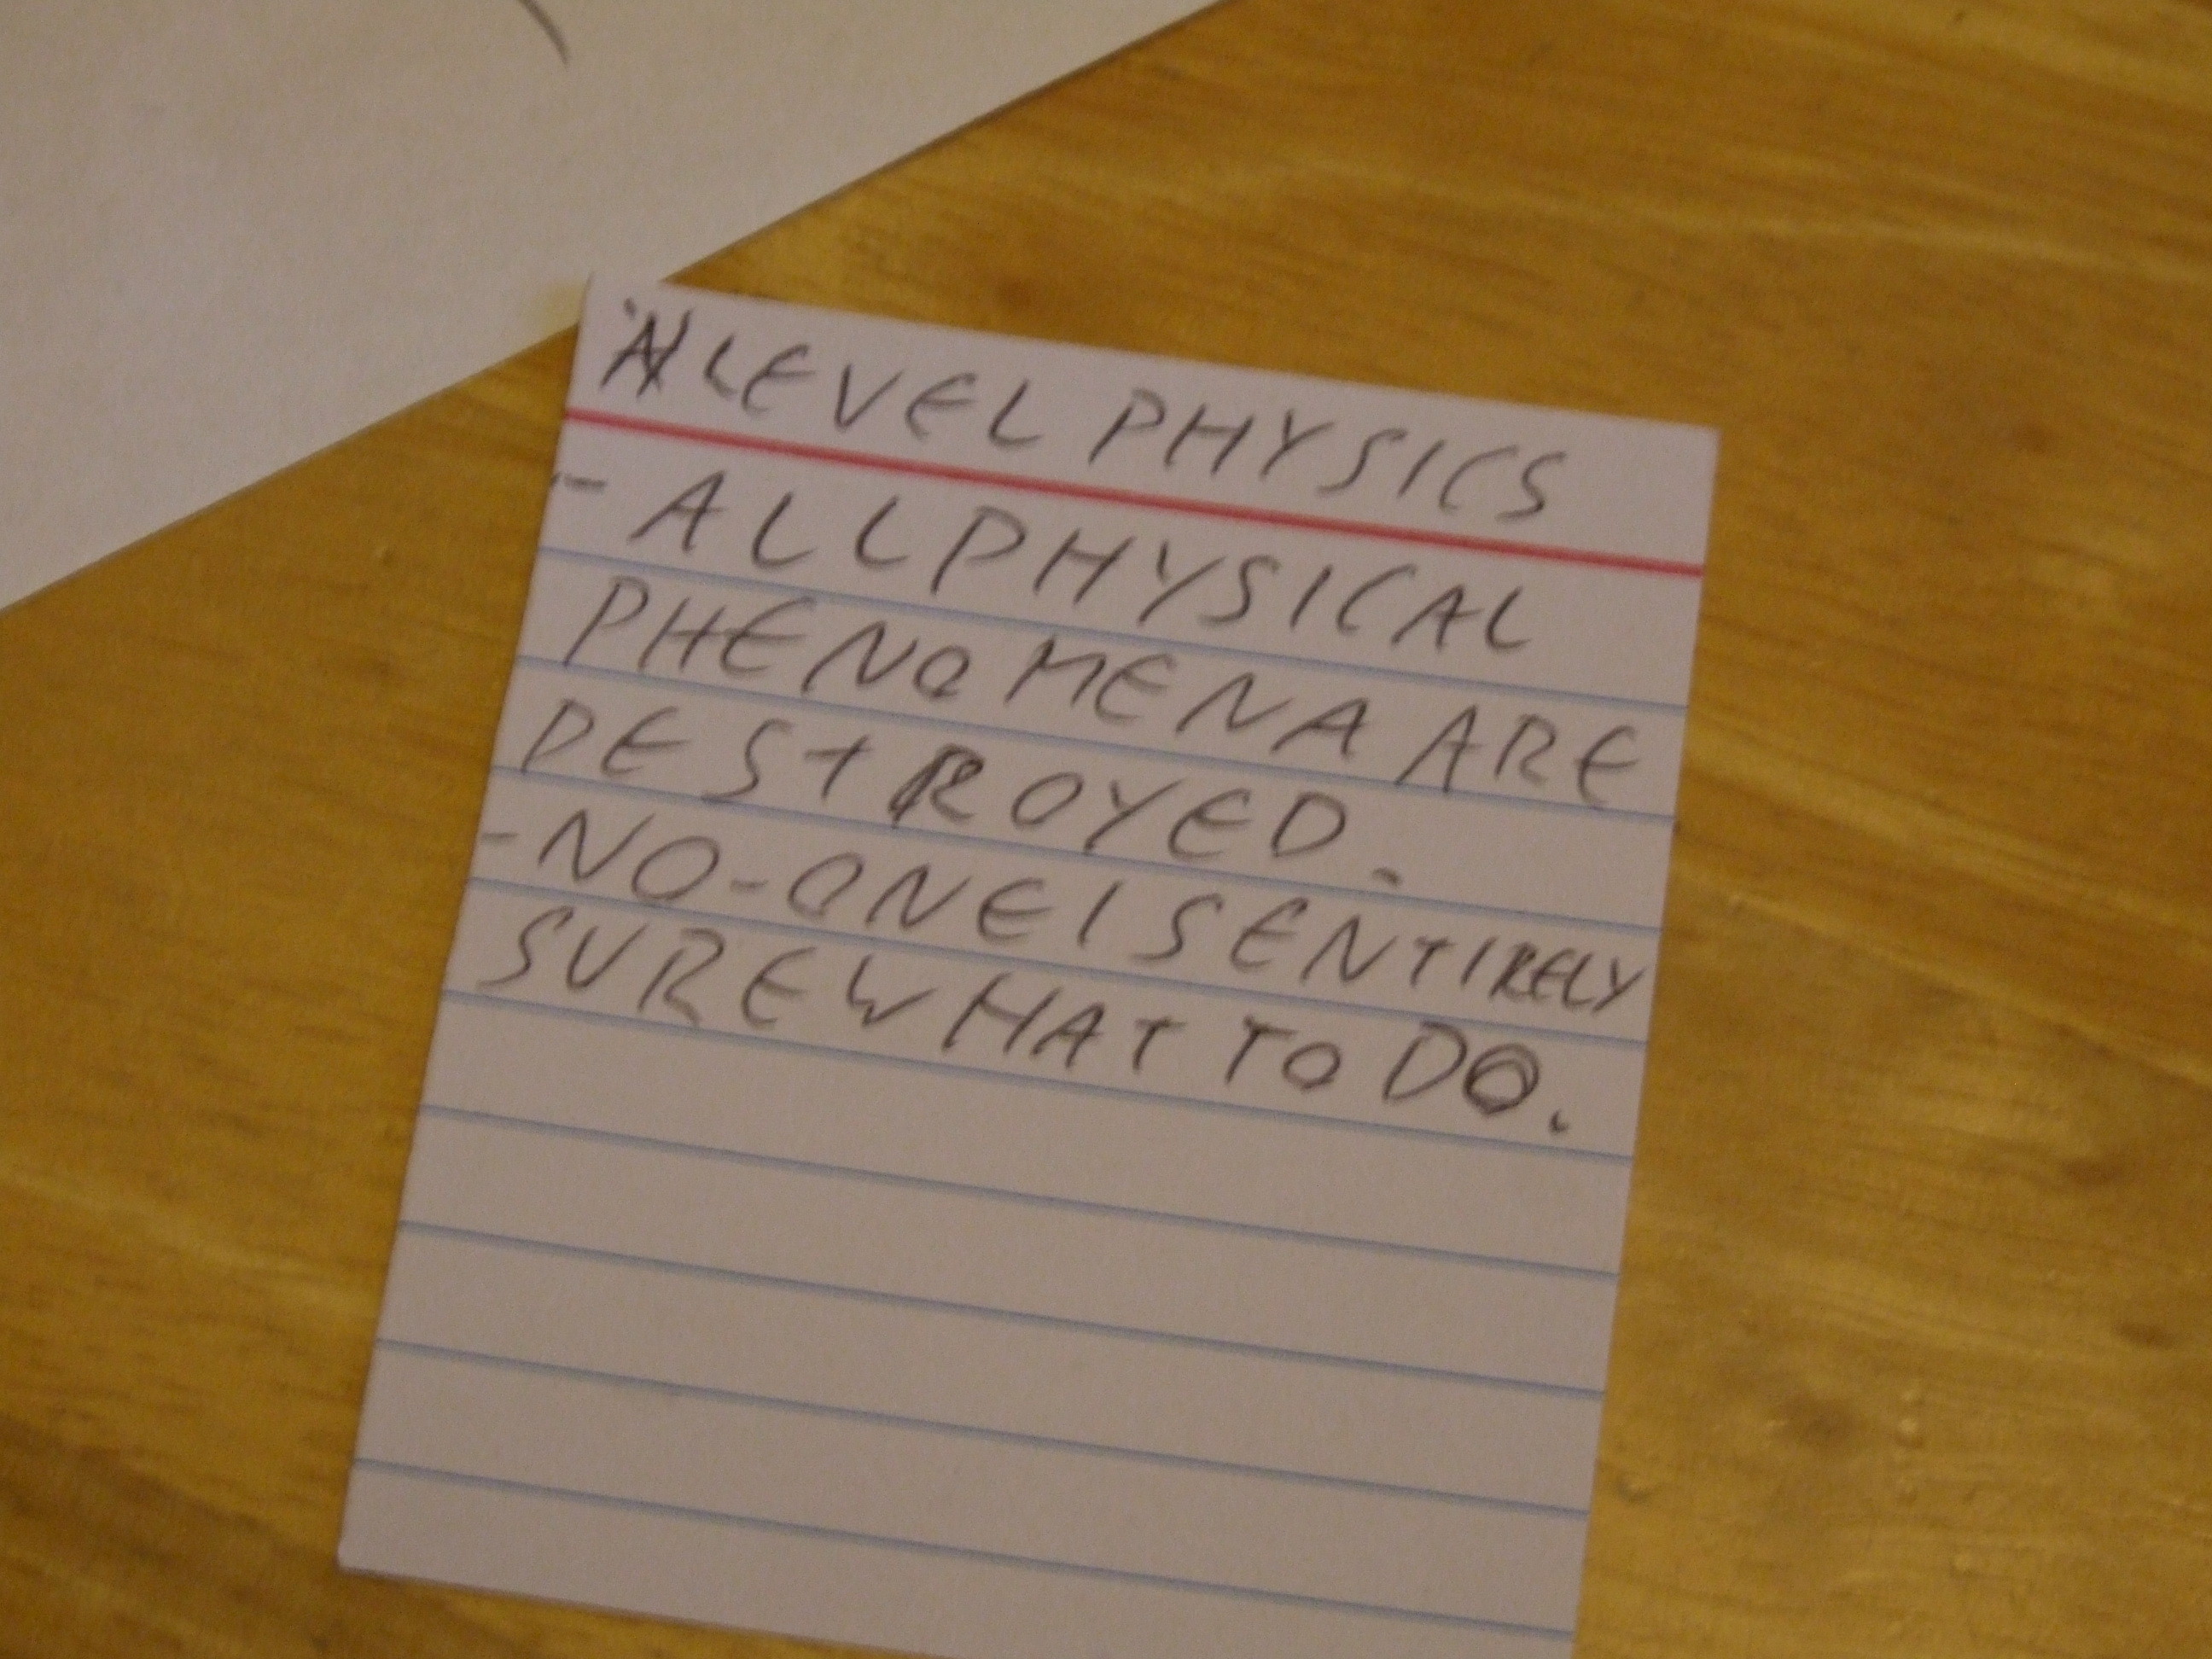 A LEVEL PHYSICS
- ALL PHYSICAL
PHENOMENA ARE
DESTROYED.
- NO-ONE IS ENTIRELY
SURE WHAT TO DO.